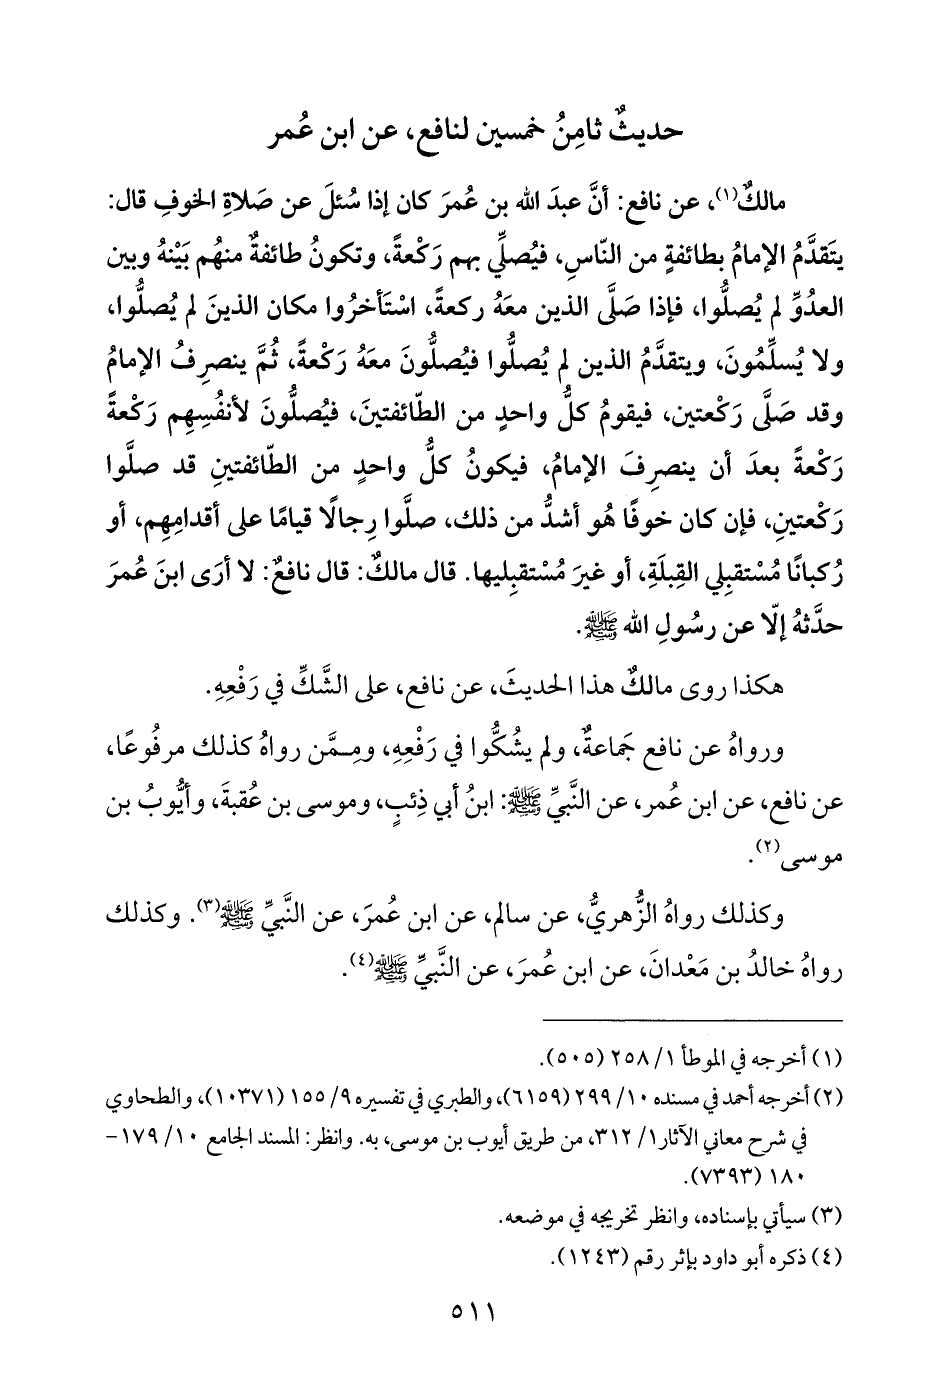 حديثٌ ثامِنُ خمسين لنافع، عن ابن عُمر
مالكٌ(١)، عن نافع: أنَّ عبدَ الله بن عُمرَ كان إذا سُئلَ عن صَلاةِ الخوفِ قال:
يتَقدَّمُ الإمامُ بطائفةٍ من النّاسِ، فيُصلِّي بهم رَكْعةً، وتكونُ طائفةٌ منهُم بَيْنهُ وبين
العدُوِّ لم يُصلُّوا، فإذا صَلَّى الذين معَهُ ركعةً، اسْتَأخرُوا مكان الذينَ لم يُصلُّوا،
ولا يُسلِّمُونَ، ويتقدَّمُ الذين لم يُصلُّوا فيُصلُّونَ معَهُ رَكْعةً، ثُمَّ ينصرِفُ الإمامُ
وقد صَلَّى رَكْعتين، فيقومُ كلُّ واحدٍ من الطّائفتينَ، فيُصلُّونَ لأنفُسِهِم رَكْعةً
رَكْعةً بعدَ أن ينصرِفَ الإمامُ، فيكونُ كلُّ واحدٍ من الطائفتينِ قد صلَّوا
رَكْعتينِ، فإن كان خوفًا هُو أشدُّ من ذلك، صلَّوا رِجالًا قيامًا على أقدامِهِم، أو
رُكبانًا مُسْتقبِلي القِبلَةِ، أو غيرَ مُسْتقبِليها. قال مالكٌ: قال نافعٌ: لا أرَى ابنَ عُمرَ
حدَّثهُ إلّا عن رسُولِ الله ﷺ.
هكذا روى مالكٌ هذا الحديثَ، عن نافع، على الشَّكِّ في رَفْعِهِ.
ورواهُ عن نافع جَماعةٌ، ولم يشُكُّوا في رَفْعِهِ، ومِـمَّن رواهُ كذلك مرفُوعًا،
عن نافع، عن ابن عُمر، عن النَّبيِّ ﷺ: ابنُ أبي ذِئبٍ، وموسى بن عُقبةَ، وأيُّوبُ بن
موسى(٢).
وكذلك رواهُ الزُّهريُّ، عن سالم، عن ابن عُمرَ، عن النَّبيِّ ﷺ(٣). وكذلك
رواهُ خالدُ بن مَعْدانَ، عن ابن عُمرَ، عن النَّبيِّ ﷺ(٤).
(١) أخرجه في الموطأ ١/ ٢٥٨ (٥٠٥).
(٢) أخرجه أحمد في مسنده ١٠/ ٢٩٩ (٦١٥٩)، والطبري في تفسيره ٩/ ١٥٥ (١٠٣٧١)، والطحاوي
في شرح معاني الآثار ١/ ٣١٢، من طريق أيوب بن موسى، به. وانظر: المسند الجامع ١٠/ ١٧٩-
١٨٠ (٧٣٩٣).
(٣) سيأتي بإسناده، وانظر تخريجه في موضعه.
(٤) ذكره أبو داود بإثر رقم (١٢٤٣).
٥١١